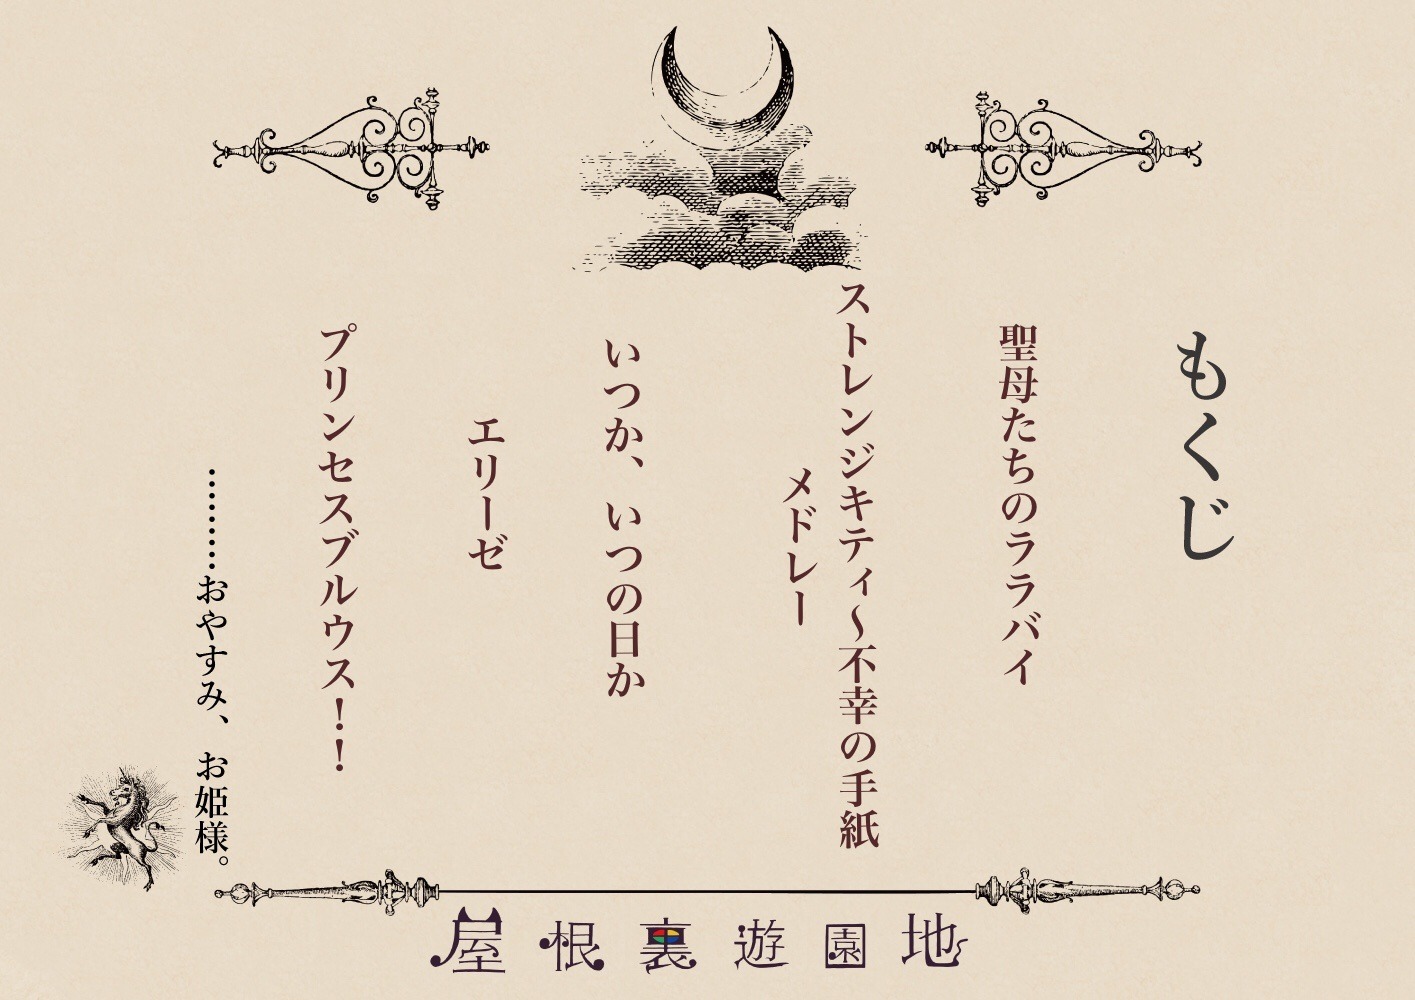 もくじ
聖母たちのララバイ
ストレンジキティ～不幸の手紙
メドレー
いつか、いつの日か
エリーゼ
プリンセスブルウス！！
………おやすみ、お姫様。
屋根裏遊園地